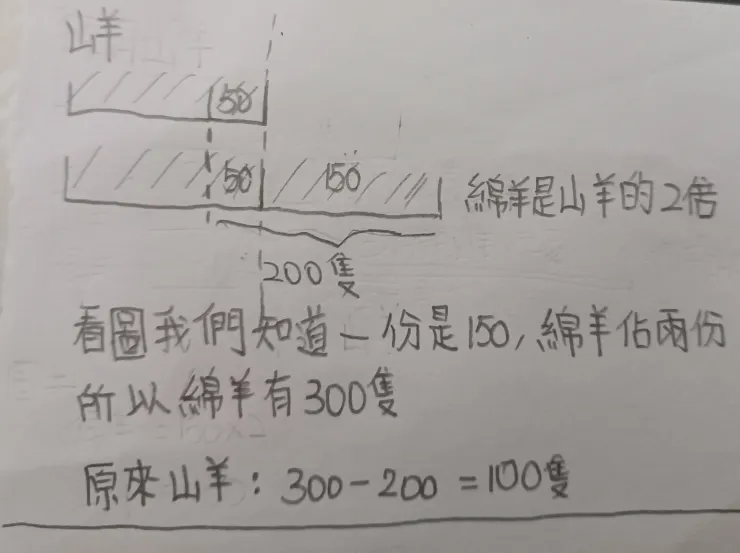 山羊
50
50 150 綿羊是山羊的2倍
200隻
看圖我們知道一份是150,綿羊佔兩份
所以綿羊有300隻
原來山羊:300-200=100隻